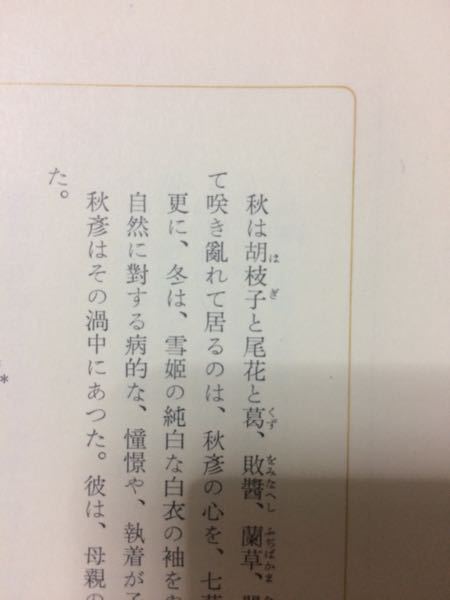 秋は胡枝子と尾花と葛、敗醬、蘭草、
はぎ
くず
をみなへし
ふぢばかま
て咲き亂れて居るのは、秋彥の心を、七
更に、冬は、雪姬の純白な白衣の袖を
自然に對する病的な、憧憬や、執着が
た。
秋彥はその渦中にあつた。彼は、母親の
*